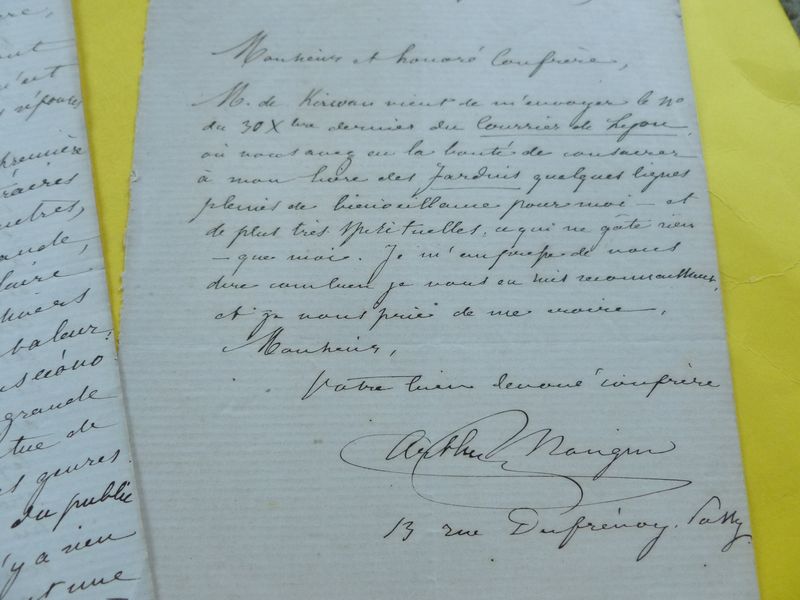 aire,
ont
n'est
réponses
première
raires
autres,
ande
laire,
univers
valeur
grande
tue de
genres
du public
n'y a rien
et une
Monsieur et honoré Confrère,
M. de Kirwan vient de m'envoyer le No
du 30 Xbre dernier du Courrier de Lyon,
où vous avez eu la bonté de consacrer
à mon livre des Jardins quelques lignes
pleines de bienveillance pour moi – et
de plus très spirituelles, ce qui ne gâte rien
– que moi. Je m'empresse de vous
dire combien je vous en suis reconnaissant,
et je vous prie de me croire,
Monsieur,
Votre bien dévoué confrère
Arthur Mangin
13 rue Dufrénoy. Passy